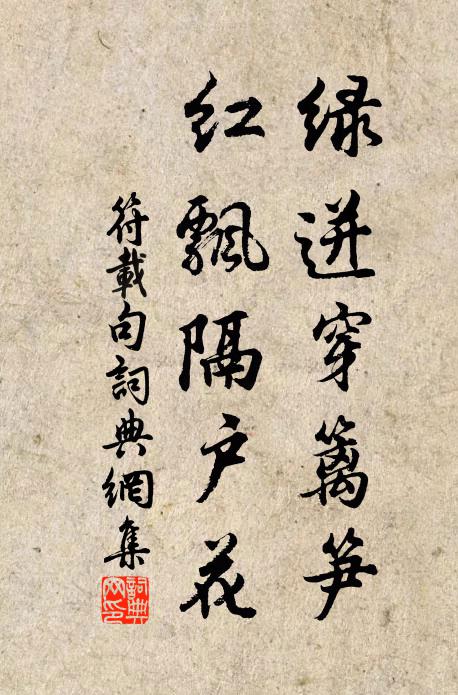 绿迸穿篱笋
红飘隔户花
符載句詞典網集
詞典
网印